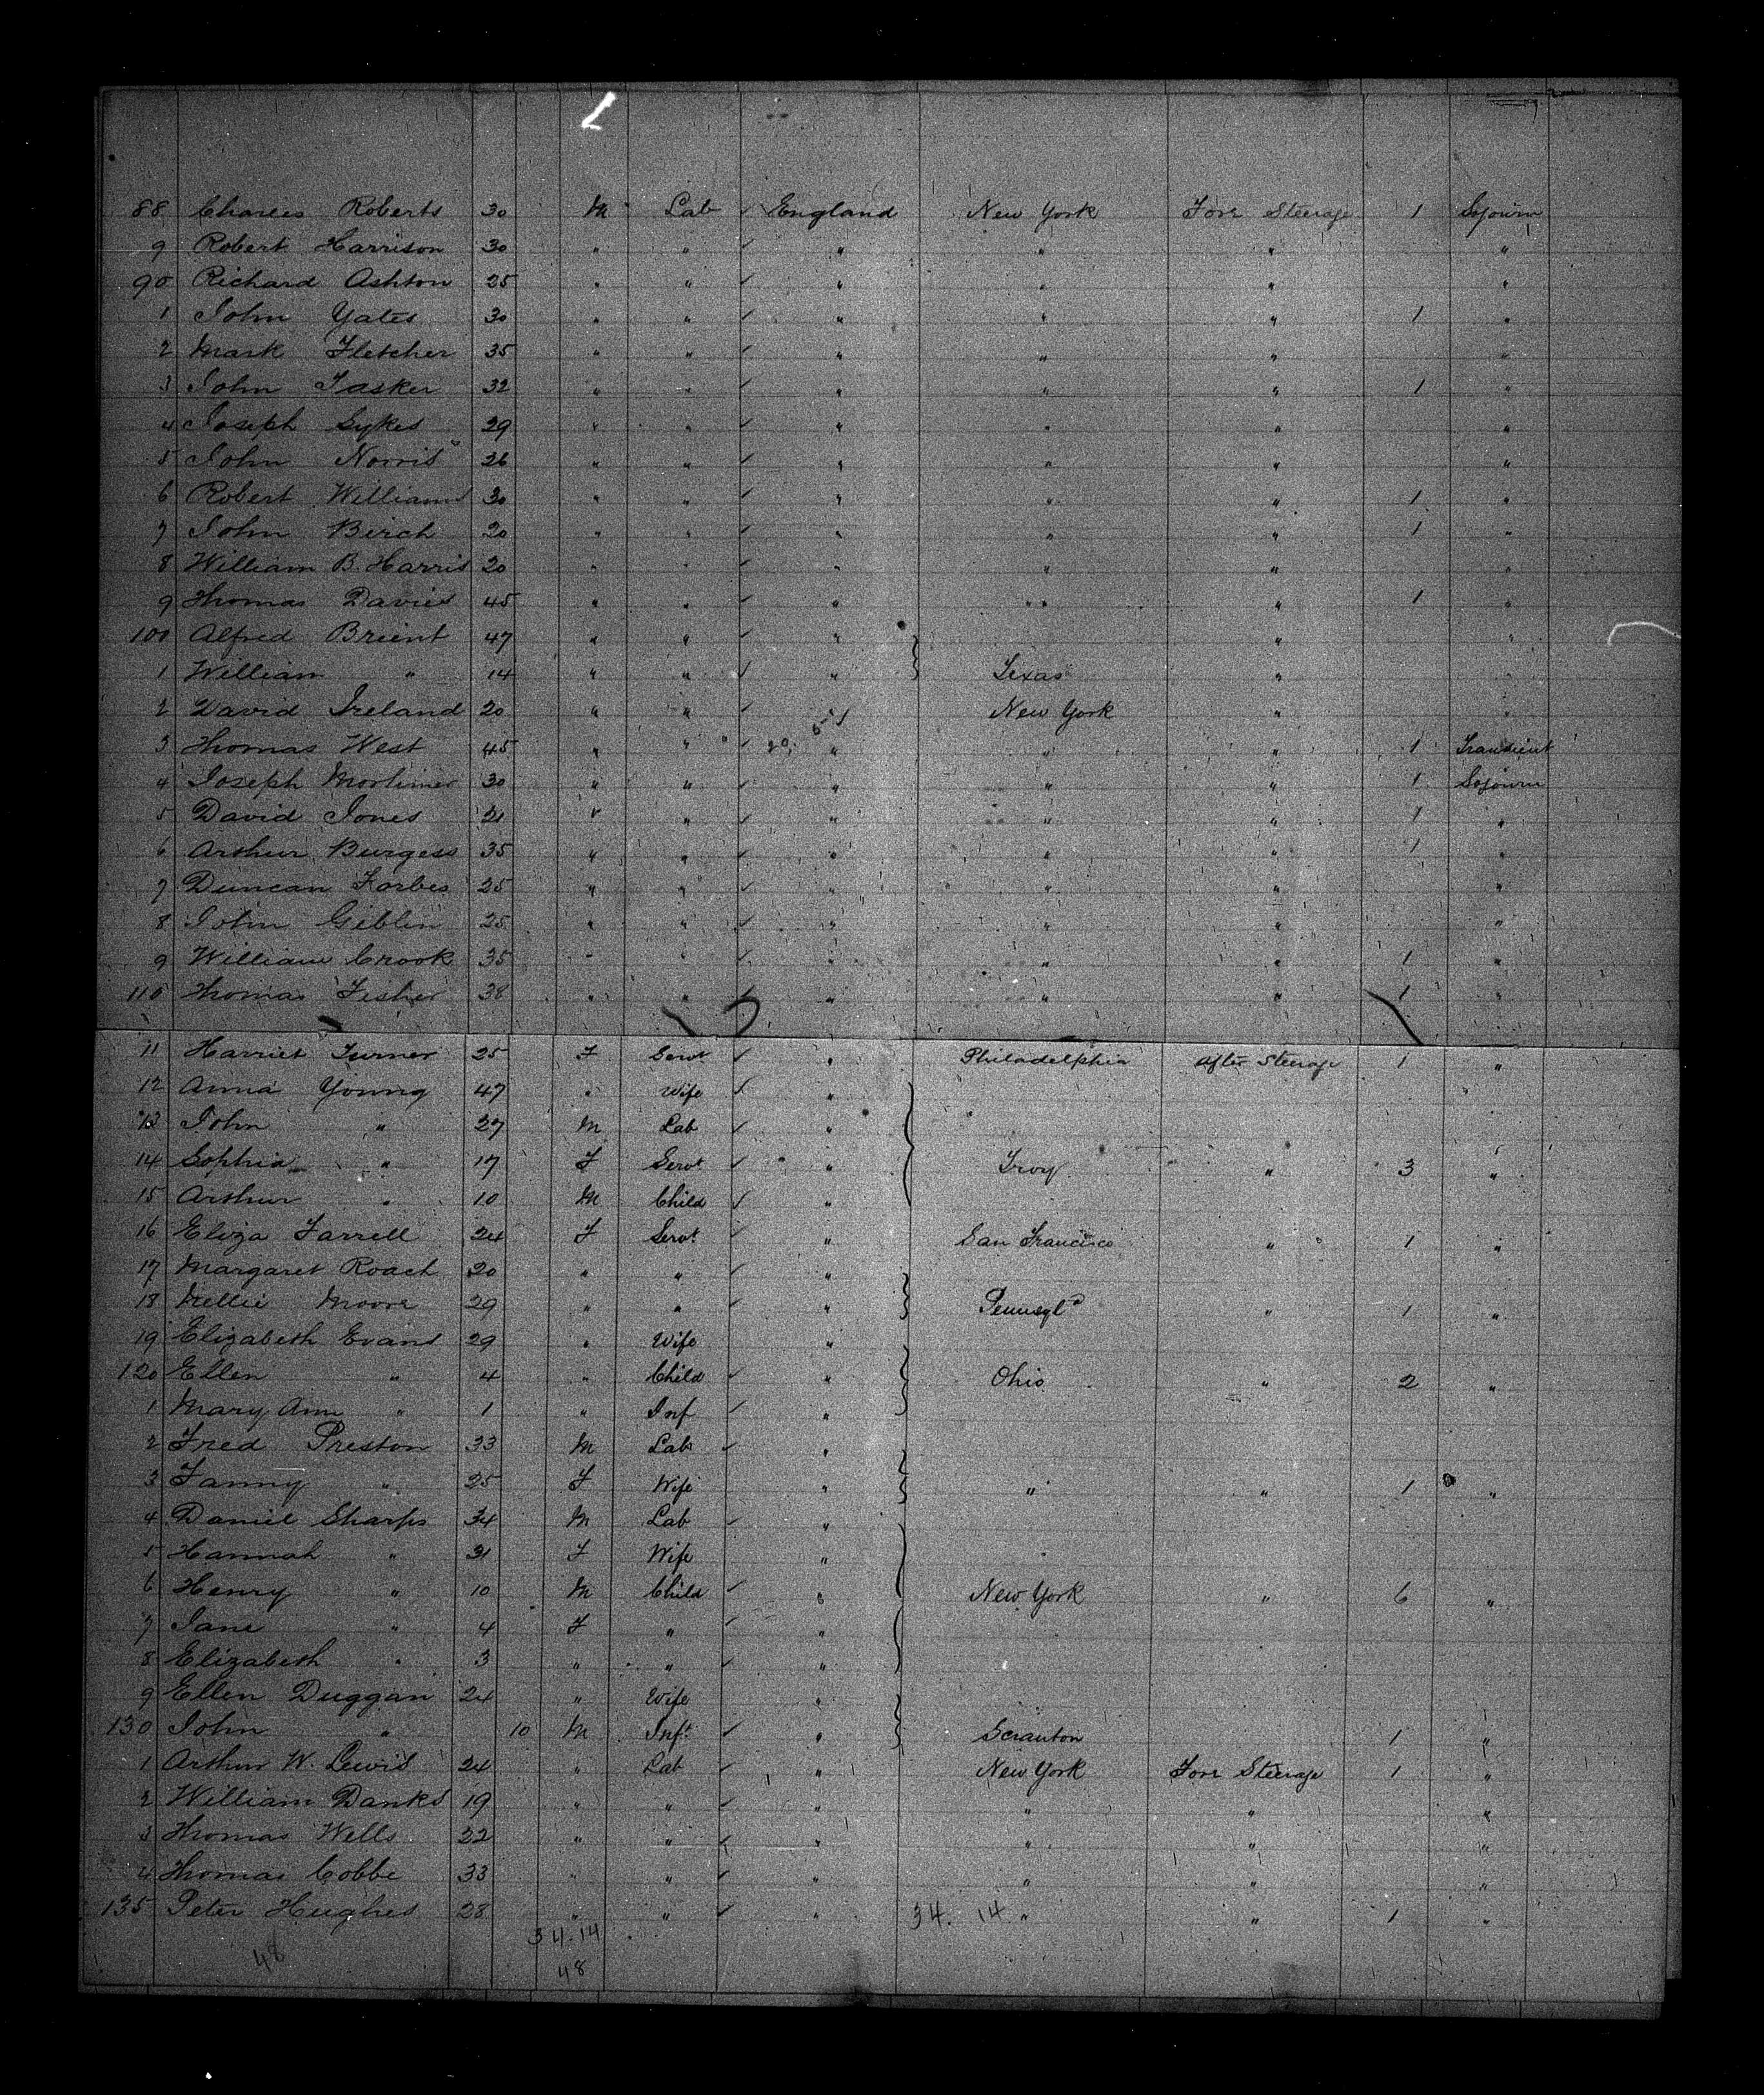 88 Charles Roberts 30 M Lab ✓ England New York Forr Steerage 1 Sojourn
9 Robert Harrison 30 " " ✓ " " " "
90 Richard Ashton 25 " " ✓ " " " "
1 John Yates 30 " " ✓ " " " 1 "
2 Mark Fletcher 35 " " ✓ " " " "
3 John Tasker 32 " " ✓ " " " 1 "
4 Joseph Sykes 29 " " ✓ " " " "
5 John Norris 26 " " ✓ " " " "
6 Robert Williams 30 " " ✓ " " " 1 "
7 John Birch 20 " " ✓ " " " 1 "
8 William B. Harris 20 " " ✓ " " " "
9 Thomas Davies 45 " " ✓ " " " 1 "
100 Alfred Brient 47 " " ✓ " " "
1 William " 14 " " ✓ " Texas "
2 David Ireland 20 " " ✓ New York " "
3 Thomas West 45 " " ✓ " " " 1 Transient
4 Joseph Mortimer 30 " " ✓ " " " 1 Sojourn
5 David Jones 21 " " ✓ " " " 1 "
6 Arthur Burgess 35 " " ✓ " " " 1 "
7 Duncan Forbes 25 " " ✓ " " " "
8 John Giblin 25 " " ✓ " " " "
9 William Crook 35 " " ✓ " " " 1 "
110 Thomas Fisher 38 " " ✓ " " " 1 "
11 Harriet Turner 25 F Servt ✓ " Philadelphia After Steerage 1 "
12 Anna Young 47 " Wife ✓ "
13 John " 27 M Lab ✓ "
14 Sophia " 17 F Servt ✓ " Troy " 3 "
15 Arthur " 10 M Child ✓ "
16 Eliza Farrell 24 F Servt ✓ " San Francisco " 1 "
17 Margaret Roach 20 " " ✓ "
18 Nellie Moore 29 " " ✓ " Pennsyla " 1 "
19 Elizabeth Evans 29 " Wife "
120 Ellen " 4 " Child ✓ " Ohio " 2 "
1 Mary Ann " 1 " Inf ✓ "
2 Fred Preston 33 M Lab ✓ "
3 Fanny " 25 F Wife " " " 1 "
4 Daniel Sharps 34 M Lab ✓ "
5 Hannah " 31 F Wife "
6 Henry " 10 M Child ✓ " New York " 6 "
7 Jane " 4 F " ✓ "
8 Elizabeth " 3 " " ✓ "
9 Ellen Duggan 24 " Wife "
130 John " 10 M Inft ✓ " Scranton 1 "
1 Arthur W. Lewis 24 " Lab ✓ " New York Forr Steerage 1 "
2 William Danks 19 " " ✓ " " " "
3 Thomas Wells 22 " " ✓ " " " "
4 Thomas Cobbe 33 " " ✓ " " " "
135 Peter Hughes 28 " " ✓ " 34. 14 " " 1 "
34.14
48 48